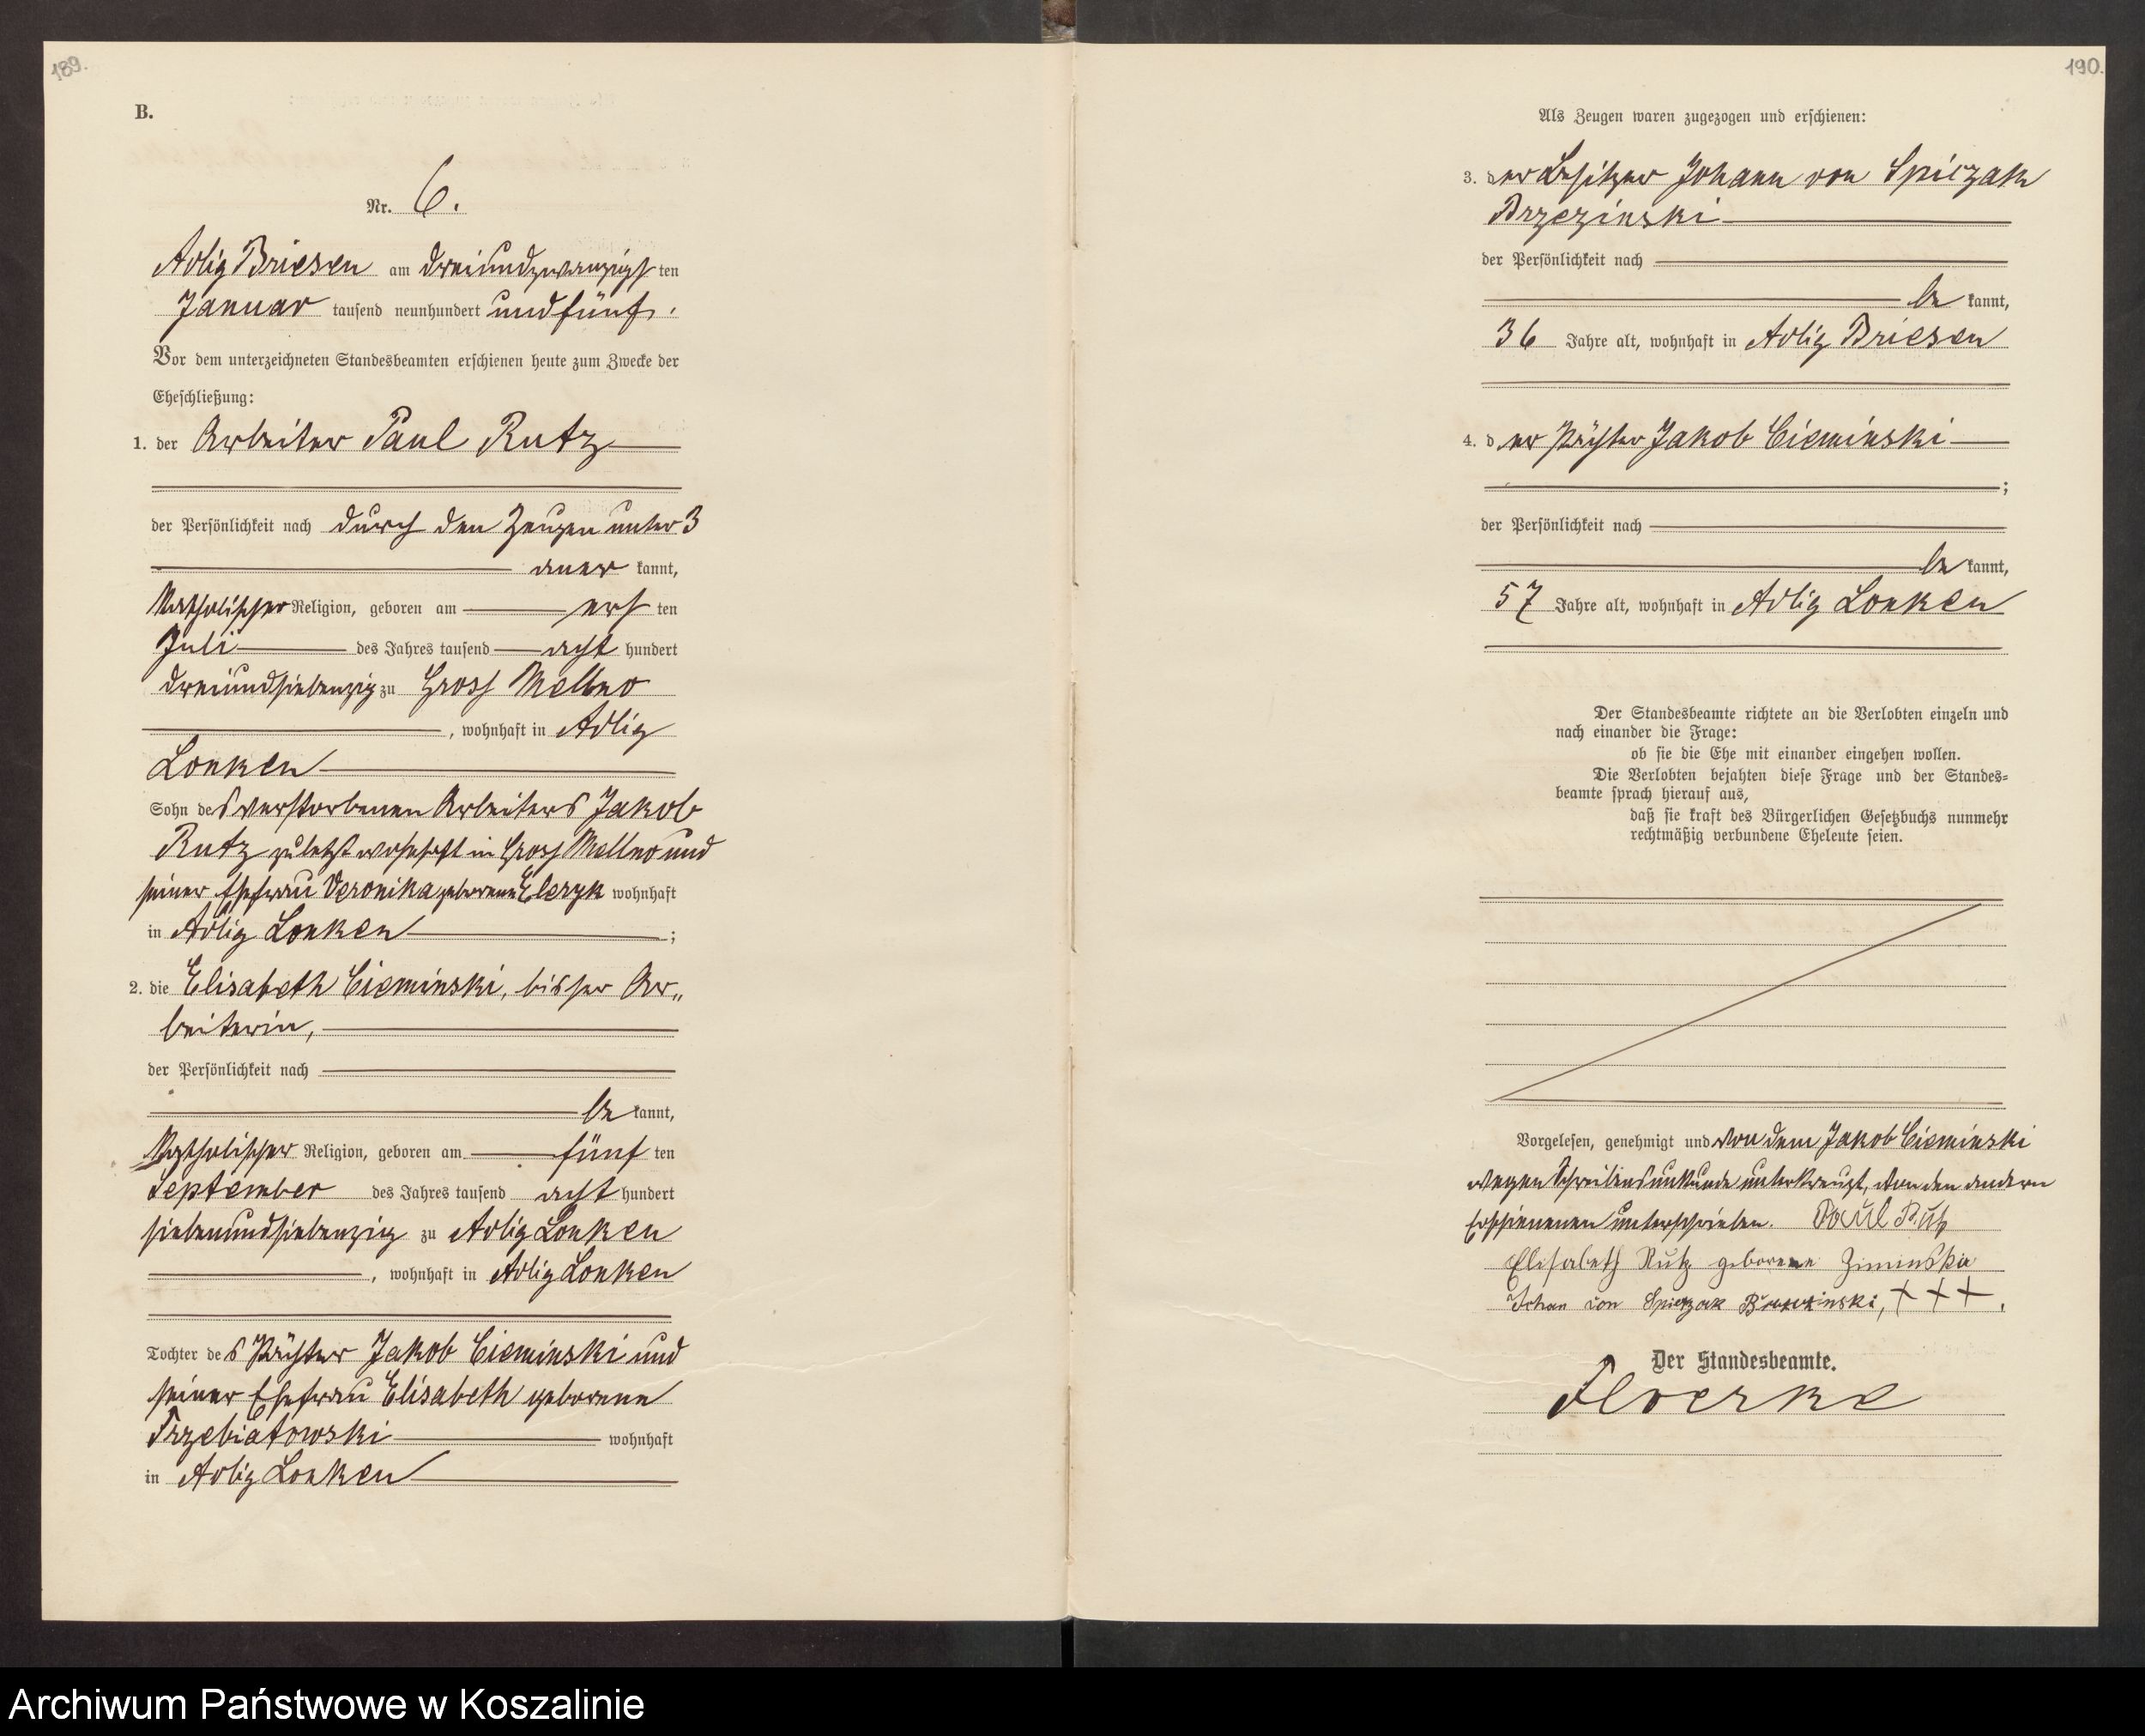 189.
B.
Nr. 6.
Adlig Briesen am dreiundzwanzigsten
Januar tausend neunhundert und fünf.
Vor dem unterzeichneten Standesbeamten erschienen heute zum Zwecke der
Eheschließung:
1. der Arbeiter Paul Rutz
der Persönlichkeit nach durch den Zeugen unter 3
aner kannt,
Katholischer Religion, geboren am ersten
Juli des Jahres tausend acht hundert
dreiundsiebenzig zu Gross Mellno
, wohnhaft in Adlig
Lonken
Sohn des verstorbenen Arbeiters Jakob
Rutz zuletzt wohnhaft in Gross Mellno und
seiner Ehefrau Veronika geborene wohnhaft
in Adlig Lonken ;
2. die Elisabeth Cieminski, bisher Ar„
beiterin,
der Persönlichkeit nach
be kannt,
Katholischer Religion, geboren am fünf ten
September des Jahres tausend acht hundert
siebenundsiebenzig zu Adlig Lonken
, wohnhaft in Adlig Lonken
Tochter des Pächter Jakob Cieminski und
seiner Ehefrau Elisabeth geborene
Trzebiatowski wohnhaft
in Adlig Lonken
190.
Als Zeugen waren zugezogen und erschienen:
3. der Besitzer Johann von Spiczak
Brzezinski
der Persönlichkeit nach
be kannt,
36 Jahre alt, wohnhaft in Adlig Briesen
4. der Pächter Jakob Cieminski
;
der Persönlichkeit nach
be kannt,
57 Jahre alt, wohnhaft in Adlig Lonken
Der Standesbeamte richtete an die Verlobten einzeln und
nach einander die Frage:
ob sie die Ehe mit einander eingehen wollen.
Die Verlobten bejahten diese Frage und der Standes=
beamte sprach hierauf aus,
daß sie kraft des Bürgerlichen Gesetzbuchs nunmehr
rechtmäßig verbundene Eheleute seien.
Vorgelesen, genehmigt und von dem Jakob Cieminski
wegen Schreibensunkunde unterkreuzt, von den andern
Erschienenen unterschrieben. Paul Rutz
Elisabeth Rutz geborene Ziminska
Johan von Spiczak Brzezinski, + + + .
Der Standesbeamte.
Floerke
Archiwum Państwowe w Koszalinie